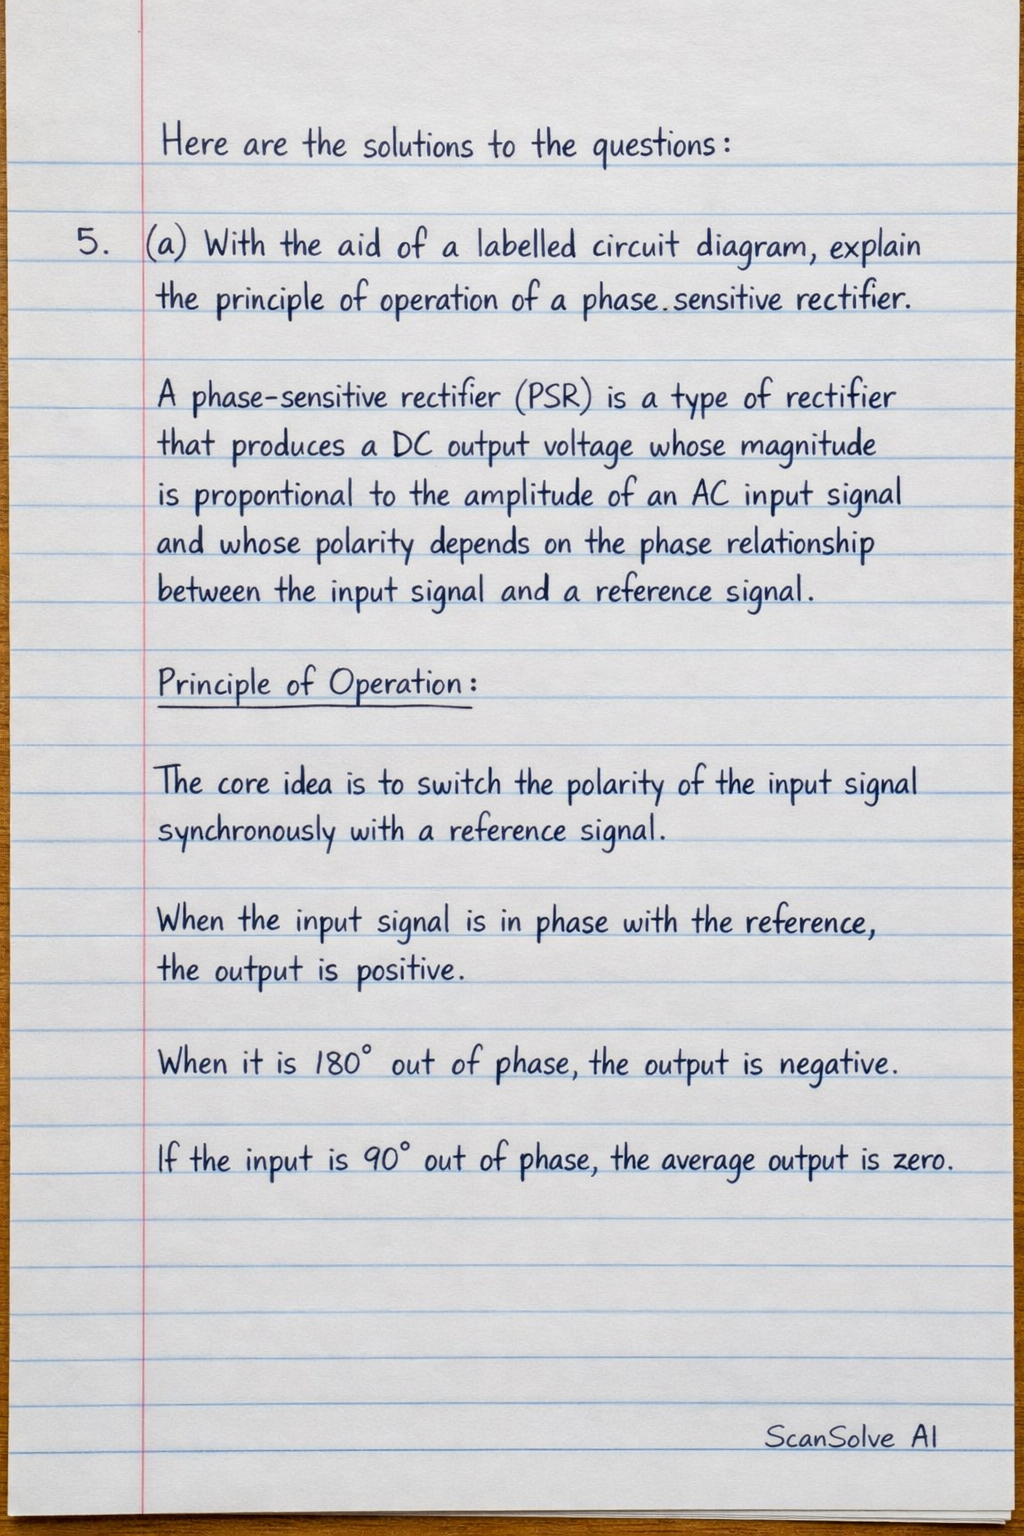 Here are the solutions to the questions:
5. (a) With the aid of a labelled circuit diagram, explain
the principle of operation of a phase.sensitive rectifier.
A phase-sensitive rectifier (PSR) is a type of rectifier
that produces a DC output voltage whose magnitude
is propontional to the amplitude of an AC input signal
and whose polarity depends on the phase relationship
between the input signal and a reference signal.
Principle of Operation:
The core idea is to switch the polarity of the input signal
synchronously with a reference signal.
When the input signal is in phase with the reference,
the output is positive.
When it is 180° out of phase, the output is negative.
If the input is 90° out of phase, the average output is zero.
ScanSolve AI